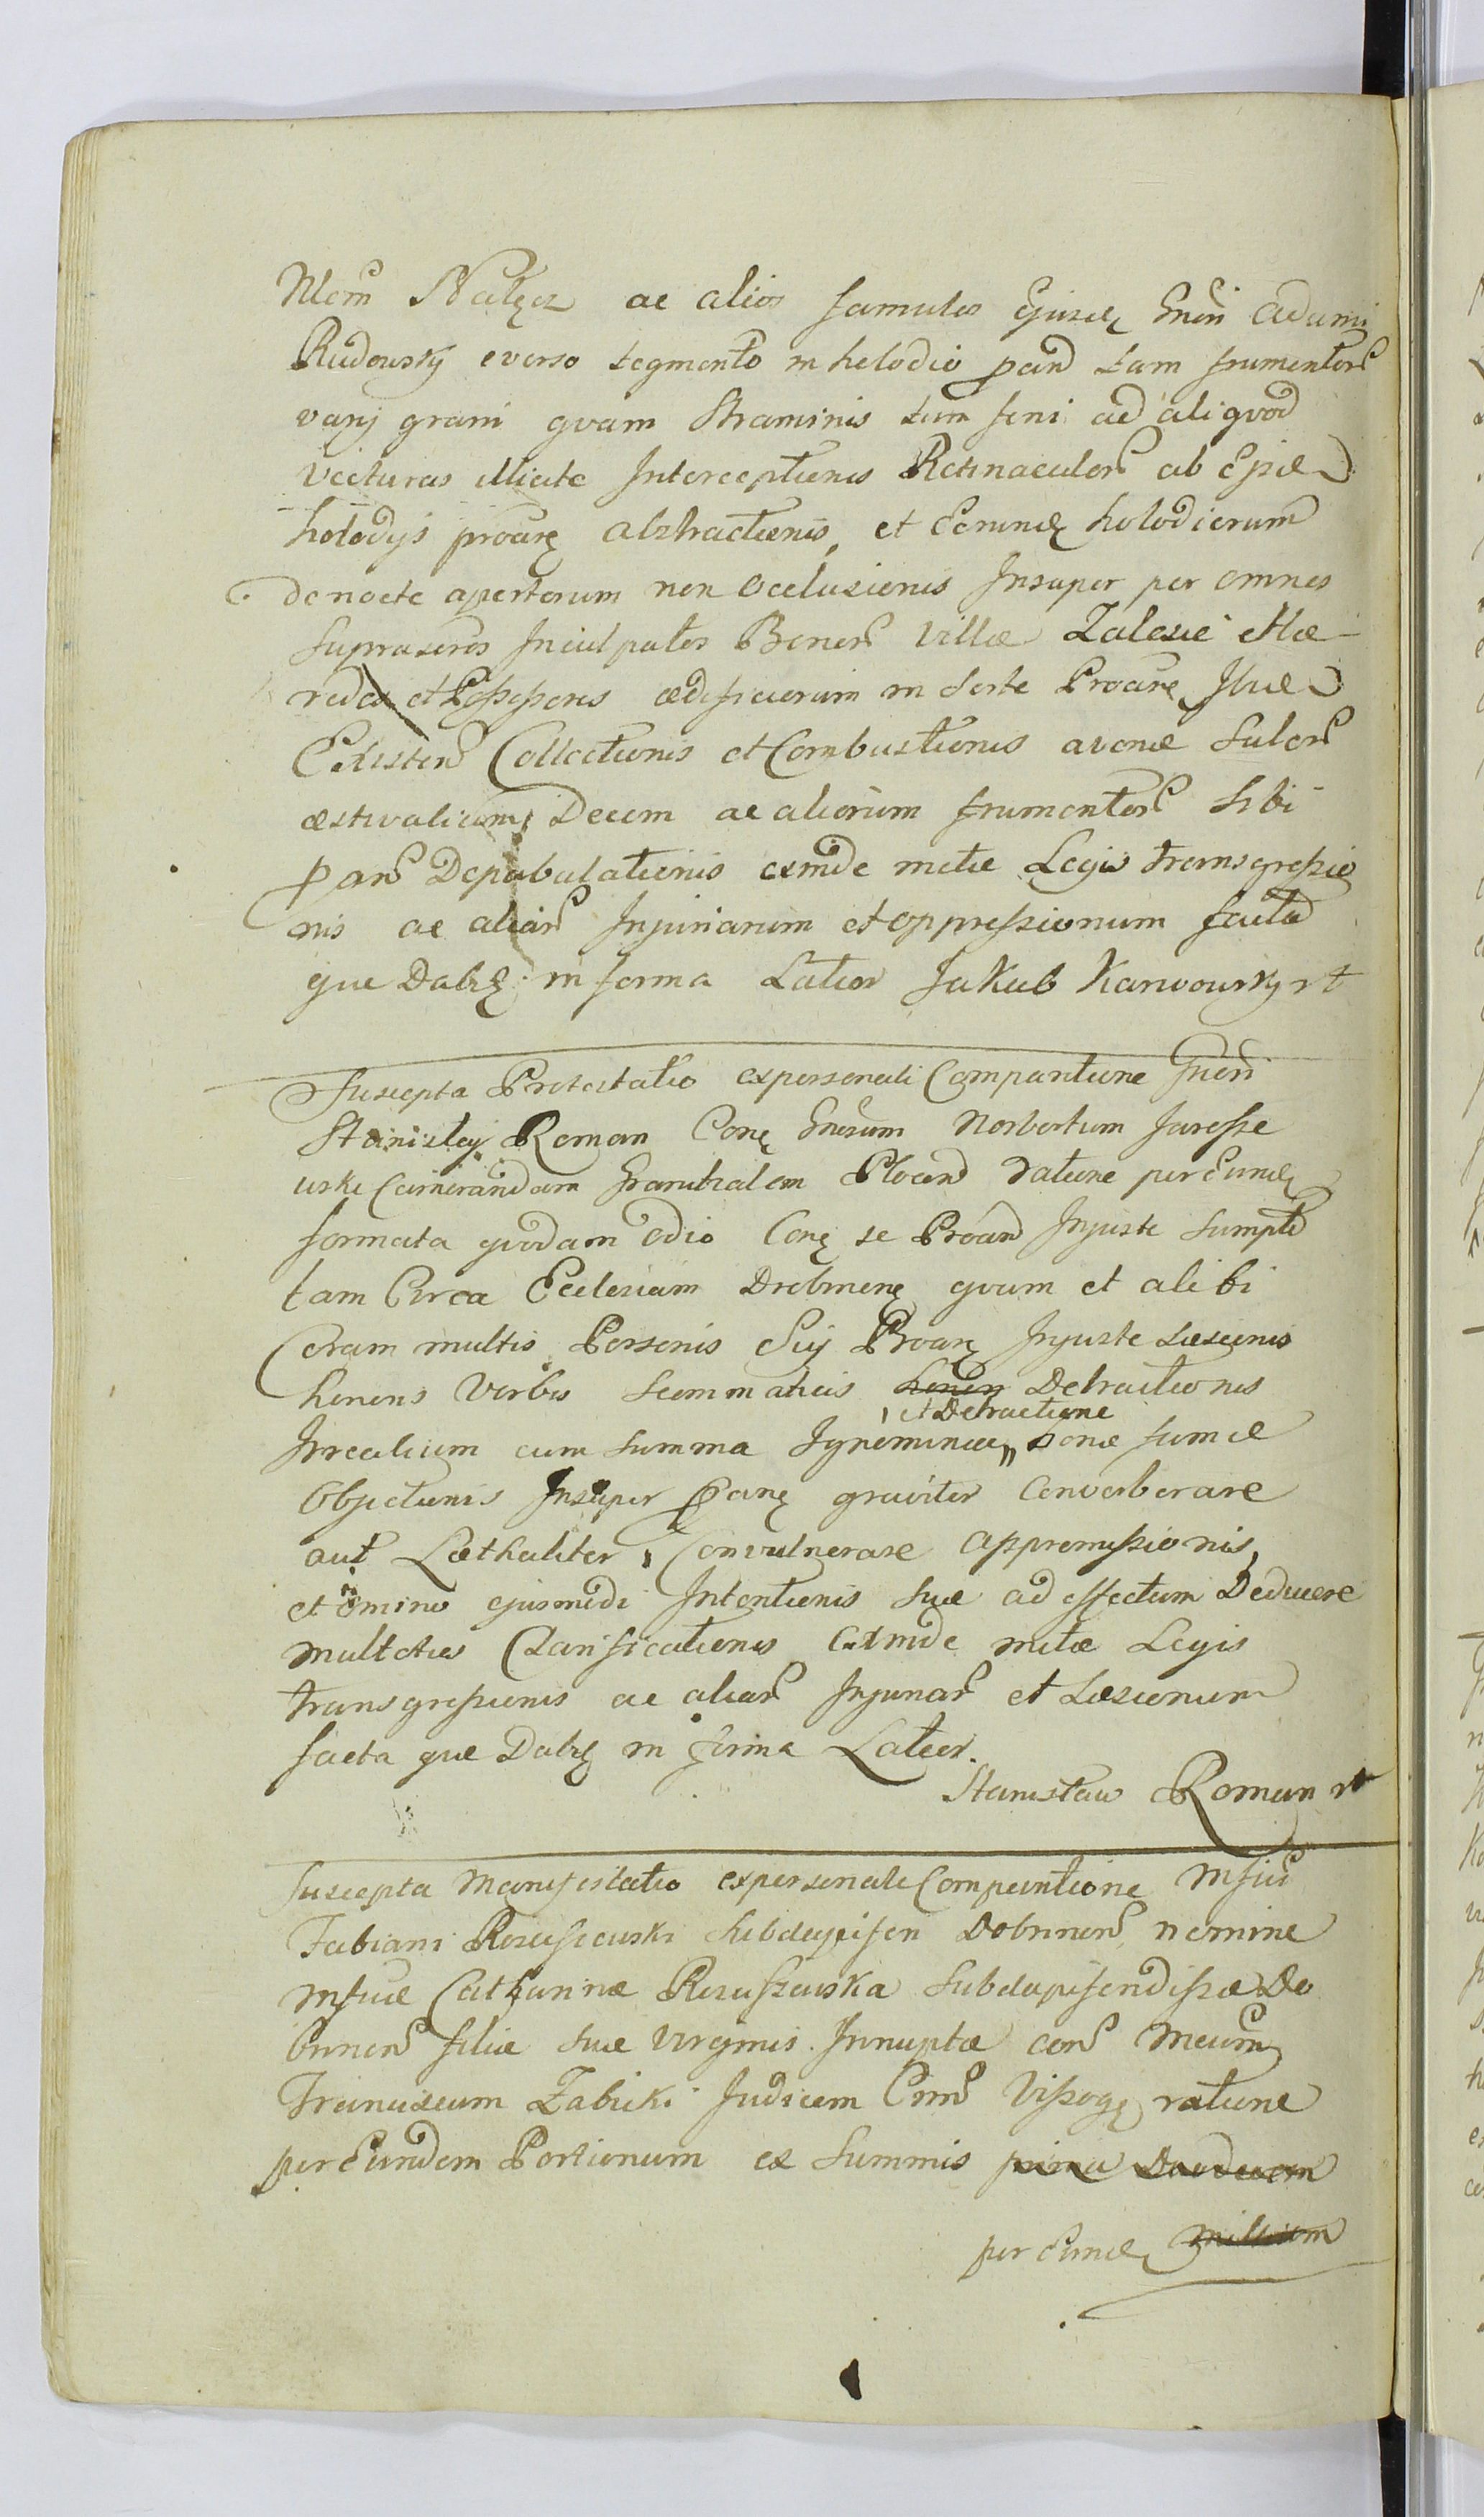 ac alios famulos Ejusd Gnen Adami
Rudowsky everso segmento in helodio tam frumentor
varij grani quam Straminis tum feni ad aliquod
vecturas illicite Interceptionis Retinaculor ab Ejsd
holodijs proañ abstractionis, et Eorund holodiorum
de nocte apertorum non occlusionis Insuper per omnes
Supraseros Inculpatos Bonor Villæ Zalesie Hæ
redes et Possessores ædificiorum in sorte Proañ
Existen Collectionis et Combustionis avenæ Sulor
æstivalium Decem ac aliorum frumentor sibi
Depabulationis exinde metæ Legis transgressio
nis ac aliar Injuriarum et oppressionum facta
que Dabz in forma Latior Jakub Karwowsky
Suscepta Protestatio ex personali Comparitione Gnen
Stanislaj Roman Con Gnerum Norbertum Jaresse
wski Camerarium Granitialem Plocen ratione per Eund
formata quodam odio Con se Proan Injuste Sumpto
tam Circa Ecclesiam Drobinen quam et alibi
Coram multis Personis Sui Proan Injuste Læsionis
honoris Verbis Scommaticis honor Detractionis
et Detractione
Irrealium cum Summa Ignominia bonæ famæ
Objectionis Insuper graviter Converberare
aut Læthaliter Convulnerare appromissionis,
et omino ejusmodi Intentionis Suæ ad effectum Deducere
multoties Clarificationis Exinde metæ Legis
transgressionis ac aliar Injuriar et Læsionum
facta que Dabz in forma Latior.
Stanisław Roman
Suscepta Manifestatio ex personali Comparitione Mfici
Fabiani Roscissewski Subdapiferi Dobrinen nomine
Mficæ Catharinæ Rosciszewska Subdapiferidissæ Do
brinen filiæ suæ virginis Innuptæ con
Franciscum Zabicki Judicem ratione
per Eundem Portionum ex Summis
per Eund millium